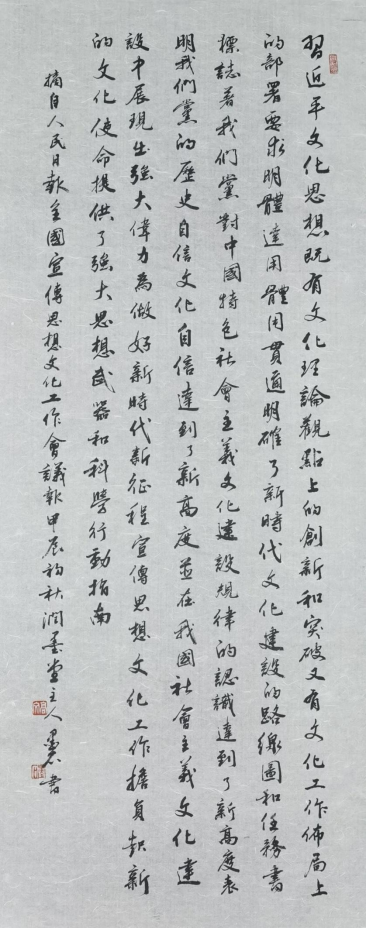 習近平文化思想既有文化理論觀點上的創新和突破又有文化工作佈局上
的部署要求明體達用體用貫通明確了新時代文化建設的路線圖和任務書
標誌着我們黨對中國特色社會主義文化建設規律的認識達到了新高度表
明我們黨的歷史自信文化自信達到了新高度並在我國社會主義文化建
設中展現出強大偉力為做好新時代新征程宣傳思想文化工作擔負起新
的文化使命提供了強大思想武器和科學行動指南
摘自人民日報全國宣傳思想文化工作會議報甲辰初秋潤墨堂主人書